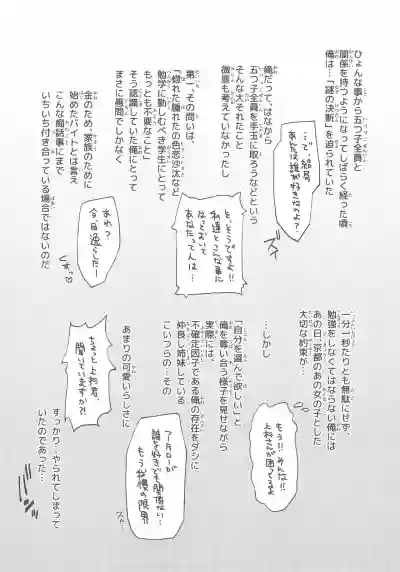 ひょんな事から五つ子全員と
関係を持つようになってしばらく経った頃
俺は…「謎の決断」を迫られていた
…で、結局
あんたは誰が好きなのよ?
俺だって、はなから
五つ子全員を手玉に取ろうなどという
そんな大それたこと
微塵も考えていなかったし
そ、そうですよ!!
私達とこんな事に
なっておいて
あなたって人は…
第一、その問いは
「惚れた腫れたの色恋沙汰など
勉学に勤しむべき学生にとって
もっとも不要なこと」
そう認識していた俺にとって
まさに愚問でしかなく
金のため、家族のために
始めたバイトとは言え
こんな痴話事にまで
いちいち付き合っている場合ではないのだ
あれ?
今、目逸らした?
一分一秒たりとも無駄にせず、
勉強をしなくてはならない俺には
あの日、京都のあの女の子とした
大切な約束が…
もう!!みんな!
上杉さんが困ってるよ
…しかし
「自分を選んで欲しい」と
俺を奪い合う様子を見せながら
実際には、
不確定因子である俺の存在をダシに
仲良し姉妹している
こいつらの…その
フータローが
誰を好きでも関係ない…
もう我慢の限界
あまりの可愛いらしさに
ちょっと上杉君、
聞いていますか?!
すっかり…やられてしまって
いたのであった…